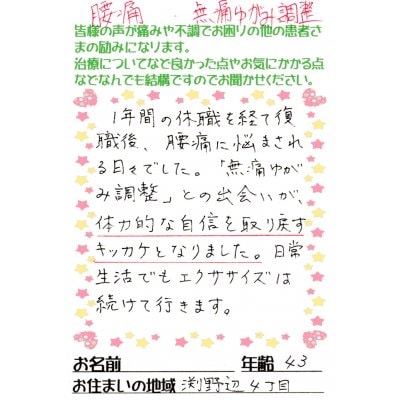 腰痛 無痛ゆがみ調整
皆様の声が痛みや不調でお困りの他の患者さ
まの励みになります。
治療についてなど良かった点やお気にかかる点
などなんでも結構ですのでお聞かせください。
1年間の休職を経て復
職後、腰痛に悩まされ
る日々でした。「無痛ゆが
み調整」との出会いが、
体力的な自信を取り戻す
キッカケとなりました。日常
生活でもエクササイズは
続けて行きます。
お名前 年齢 43
お住まいの地域 渕野辺4丁目